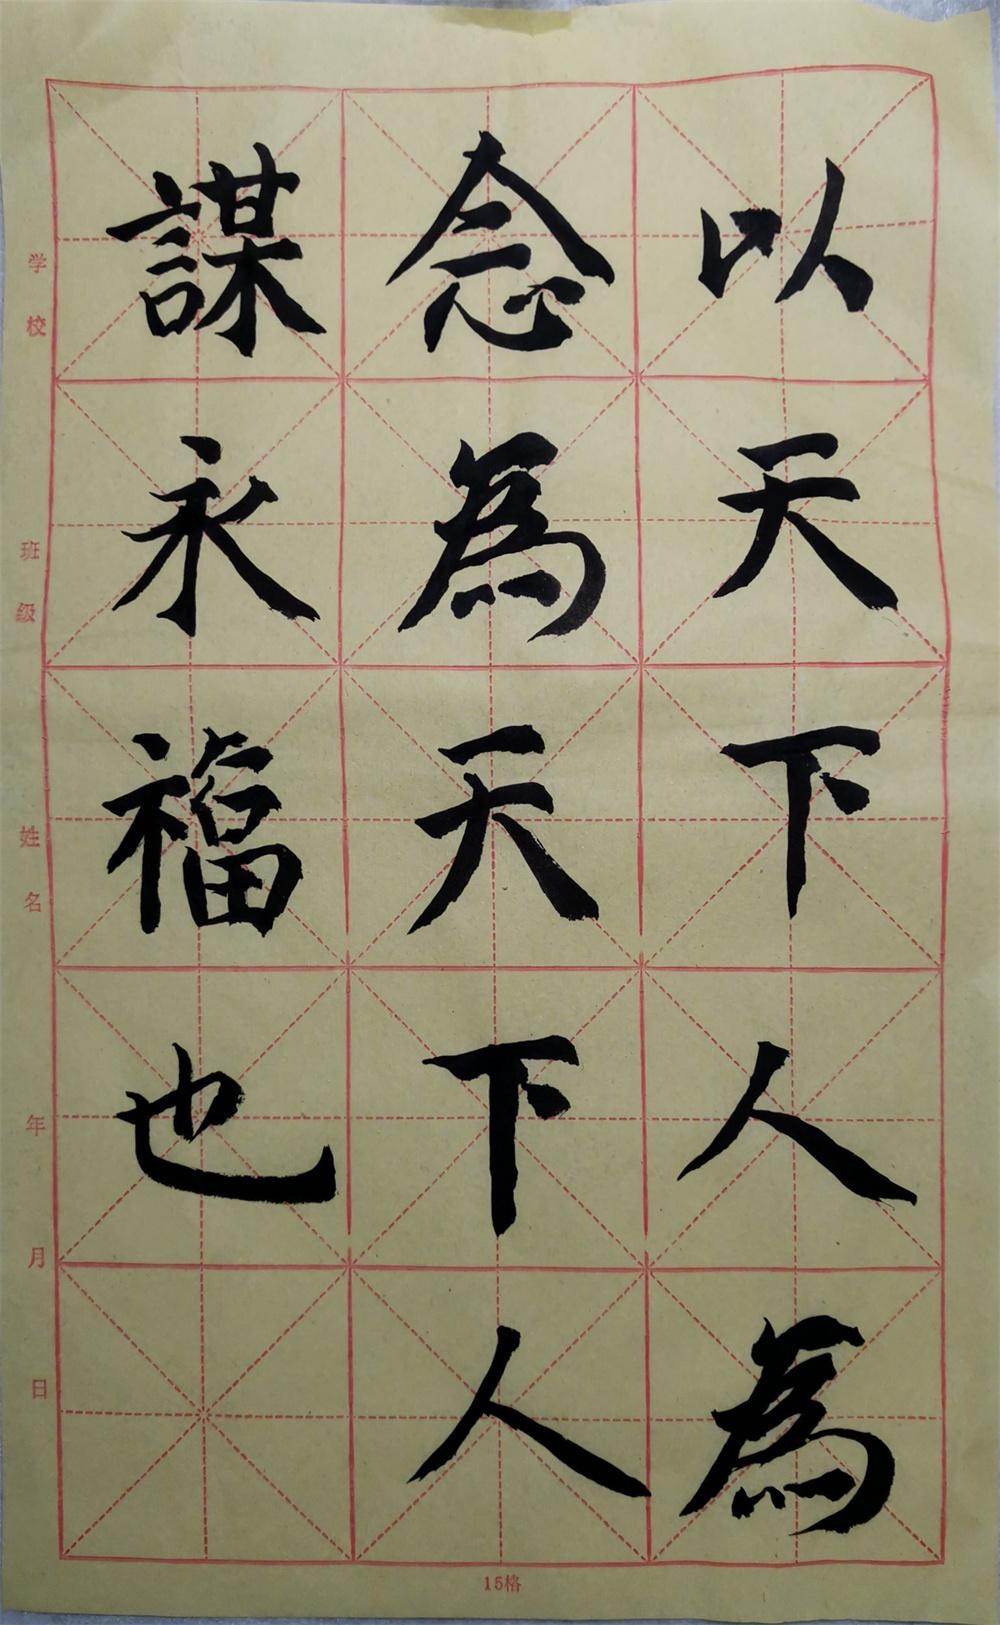 以天下人為
念為天下人
謀永福也
学校
班级
姓名
年
月
日
15格